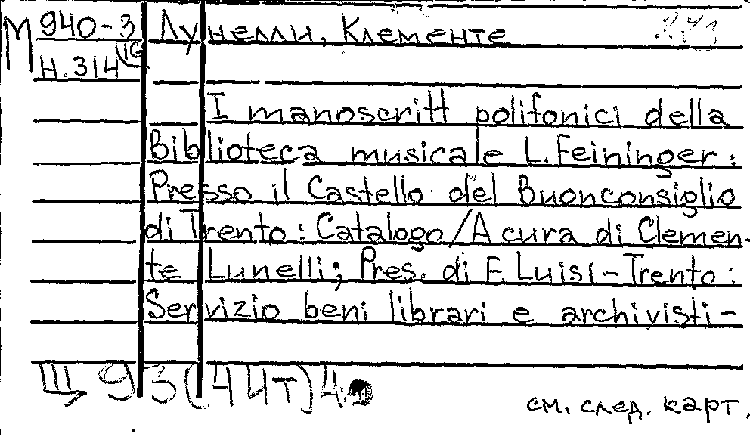 М 940-3 Лунелли, Клементе
Н.314
I manoscritt polifonici della
Biblioteca musicale L.Feininger:
Presso il Castello del Buonconsiglio
di Trento: Catalogo/A cura di Clemen-
te Lunelli; Pres. di F. Luisi-Trento:
Servizio beni librari e archivisti-
Щ 93(4Ит)4
см. след. карт.